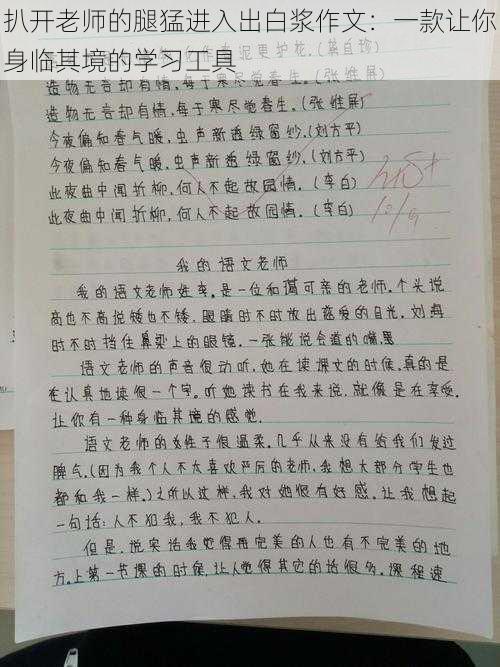 扒开老师的腿猛进入出白浆作文：一款让你
身临其境的学习工具
泥更护花.(龚自珍)
造物无言却有情,每于寒尽觉春生.(张维屏)
造物无言却有情,每于寒尽觉春生.(张维屏)
今夜偏知春气暖,虫声新透绿窗纱.(刘方平)
今夜偏知春气暖,虫声新透绿窗纱.(刘方平)
此夜曲中闻折柳,何人不起故园情.(李白)
此夜曲中闻折柳,何人不起故园情.(李白)
我的语文老师
我的语文老师姓李.是一位和蔼可亲的老师.个头说
高也不高说矮也不矮.眼睛时不时放出慈爱的目光.刘海
时不时挡住鼻梁上的眼镜.一张能说会道的嘴
语文老师的声音很动听,她在读课文的时候,真的是
在认真地读很一个字.听她读书在我来说,就像是在享受.
让你有一种身临其境的感觉.
语文老师的性子很温柔.几乎从来没有给我们发过
脾气.(因为我个人不太喜欢严厉的老师,我想大部分学生也
都和我一样.)之所以这样,我对她很有好感.让我想起
一句话:人不犯我,我不犯人.
但是.说实话我觉得再完美的人也有不完美的地
方.上第一节课的时候,让人觉得其它的话很多.课程速